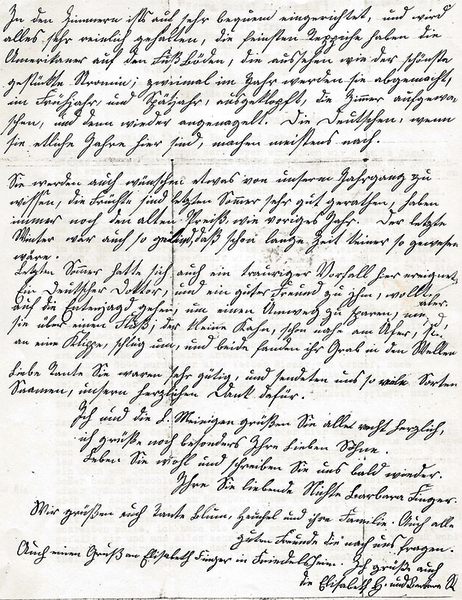 In den Zimmern ists auch sehr bequem eingerichtet, und wird
alles sehr reinlich gehalten, die feinsten Teppiche haben die
Amerikaner auf den Fuß Böden, die aussehen wie der schönste
zweimal im Jahr werden sie abgemacht,
im Frühjahr und Spätjahr, ausgeklopft, die Zimer aufgewa-
schen, und denn wieder angenagelt. Die Deutschen, wenn
sie etliche Jahre hier sind, machen meistens nach.
Sie werden auch wünschen etwas von unserm Jahrgang zu
wissen, die Früchte sind letzten Somer sehr gut gerathen, haben
immer noch den alten Preiß wie voriges Jahr. Der letzte
Winter war auch so gelind, daß schon lange Zeit keiner so gewesen
wäre.
Letzten Somer hatte sich auch ein trauriger Vorfall hier ereignet,
Ein Deutscher Doktor, und ein guter Freund zu ihm, wollten
auf die Entenjagd gehen, um einen Umweg zu sparen,
sie über einen Fluß, der kleine Kahn, schon nah am Ufer,
an eine Klippe, schlug um, und beide fanden ihr Grab in den Wellen
Liebe Tante Sie waren sehr gütig, und sendeten uns so viele Sorten
Saamen, unsern herzlichen Dank dafür.
Ich und die l. Meinigen grüßen Sie alle recht herzlich,
ich grüße noch besonders Ihre lieben Söhne.
Leben Sie wohl und schreiben Sie uns bald wieder.
Ihre Sie liebende Nichte Barbara Finger.
Wir grüßen auch Tante Blum, Heuchel und ihre Familie. Auch alle
guten Freunde die nach uns fragen.
Auch einen Gruß an Elisabeth Finger in Friedelsheim. Ich grüße auch
die Elisabeth H. und